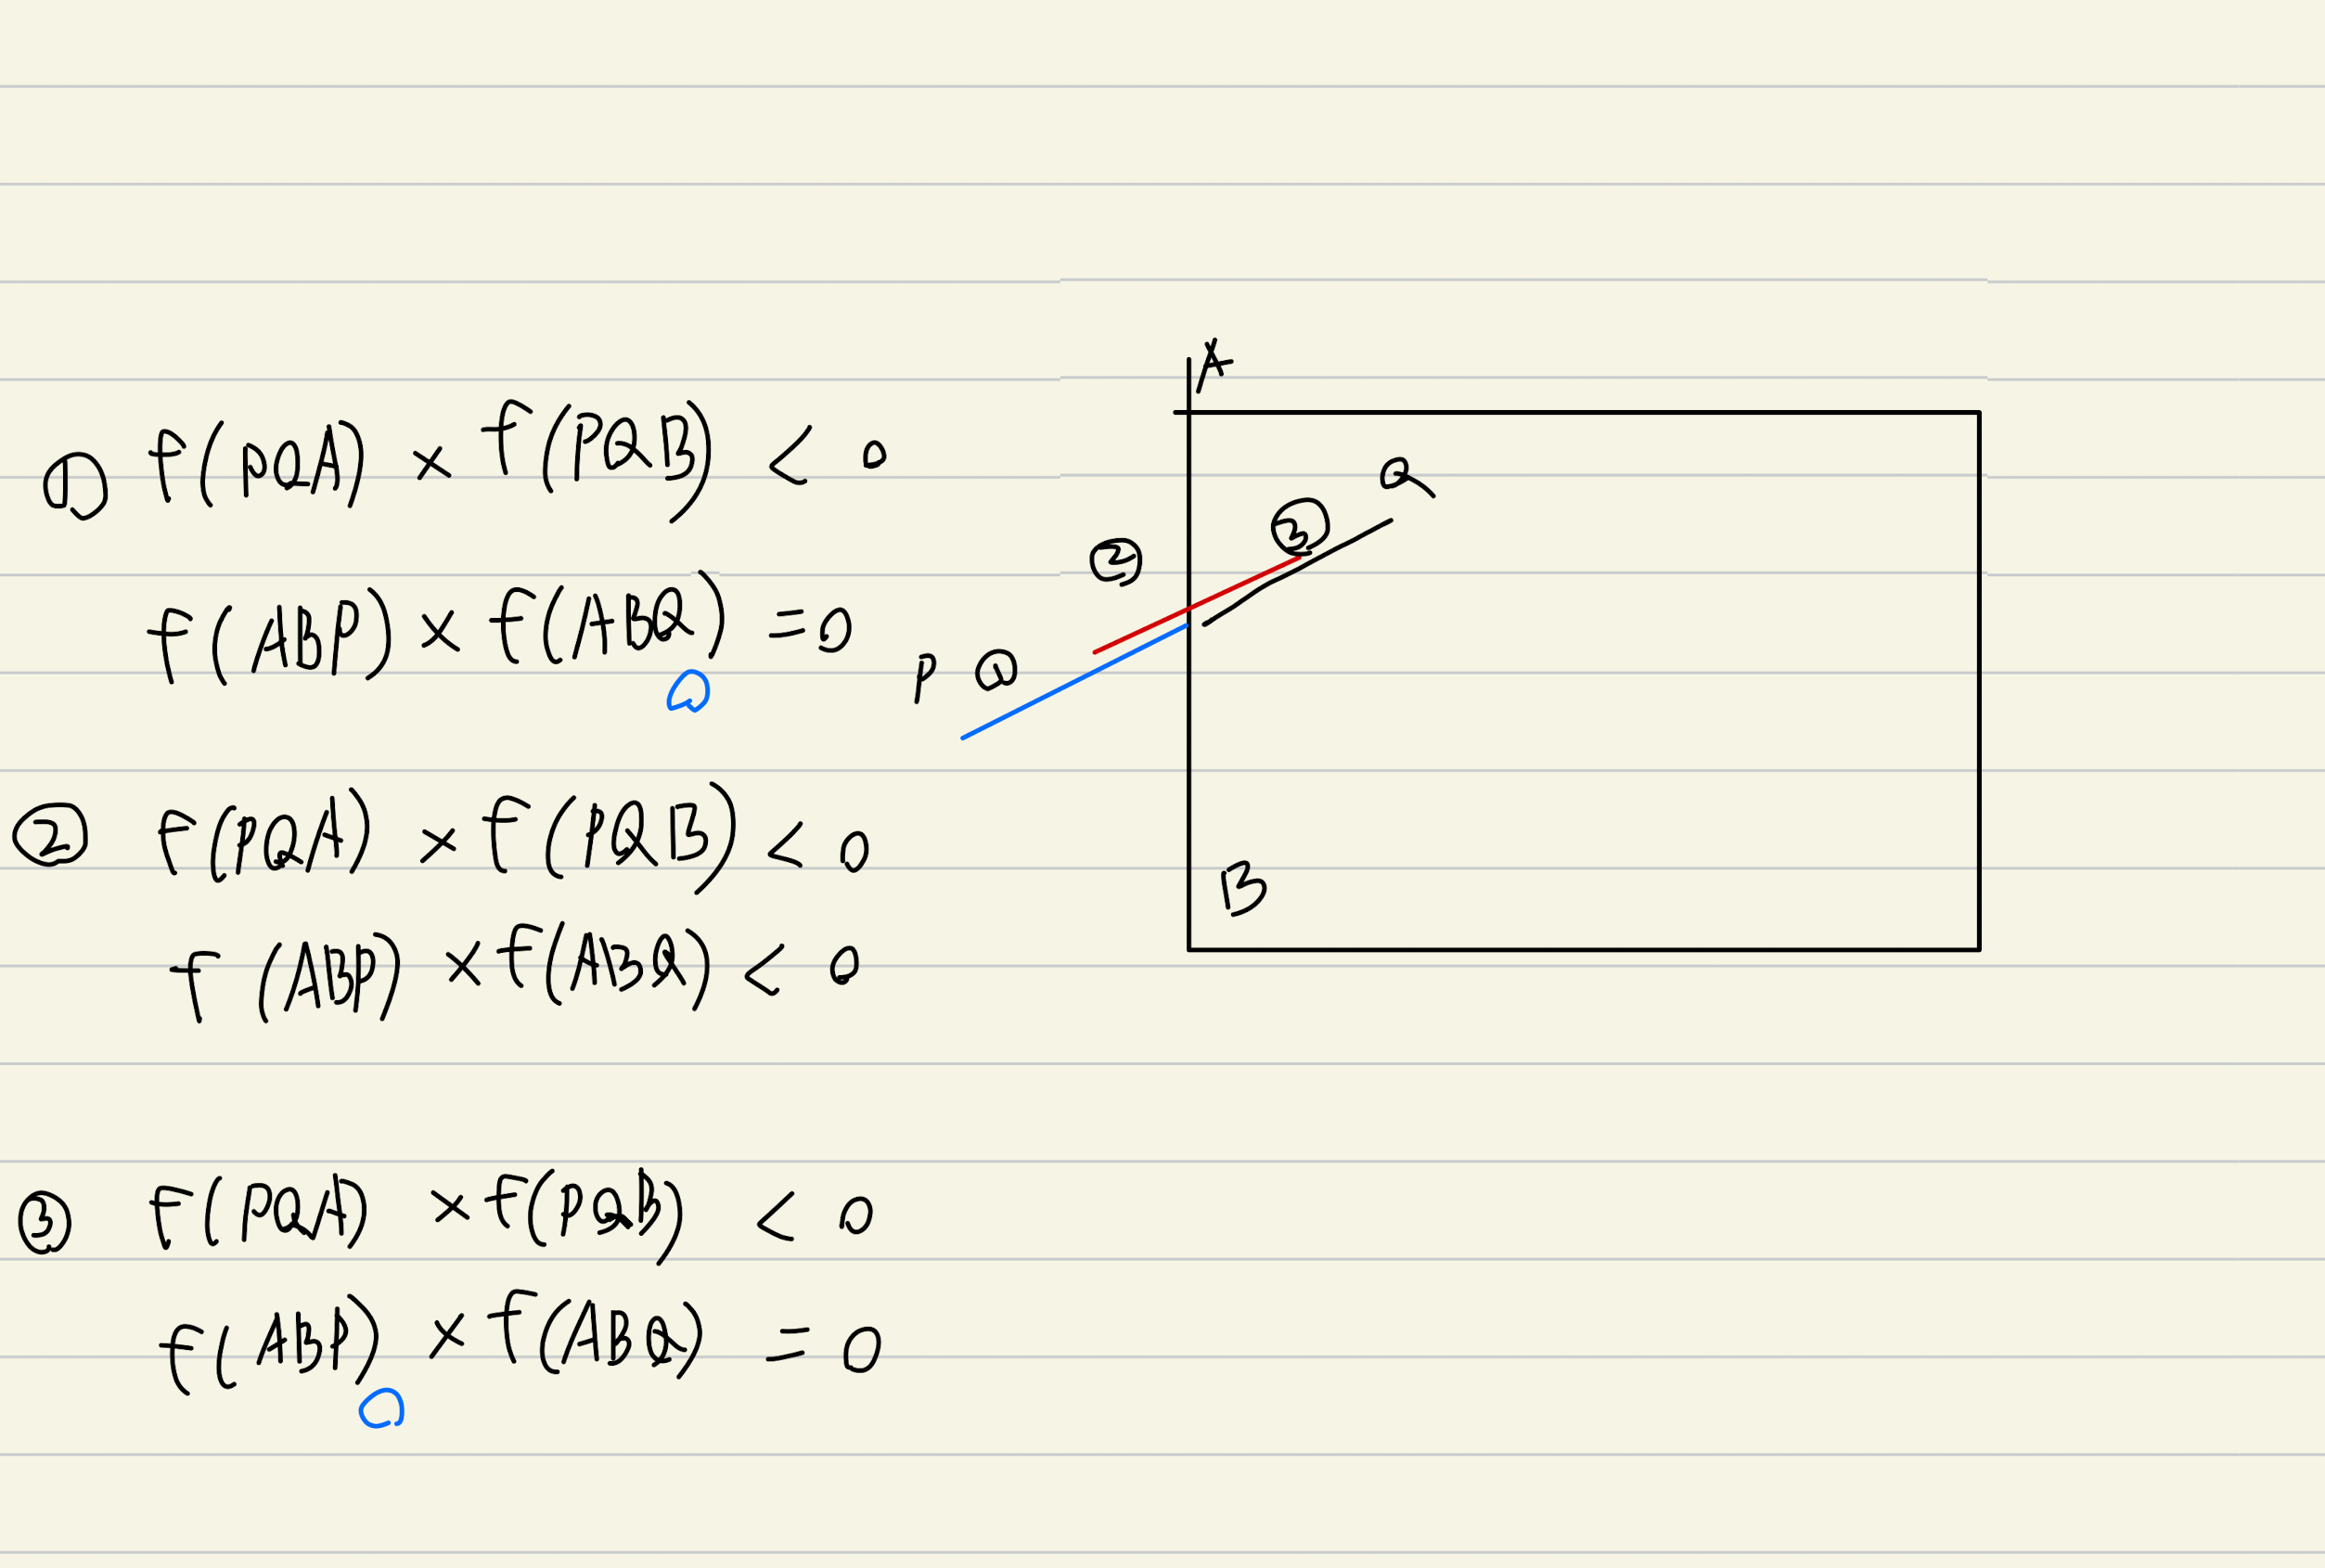 ① f(PQA) × f(PQB) < 0
f(ABP) × f(ABQ) = 0
② f(PQA) × f(PQB) < 0
f(ABP) × f(ABQ) < 0
③ f(PQA) × f(PQB) < 0
f(ABP) × f(ABQ) = 0
A
Q
③
②
P ①
B